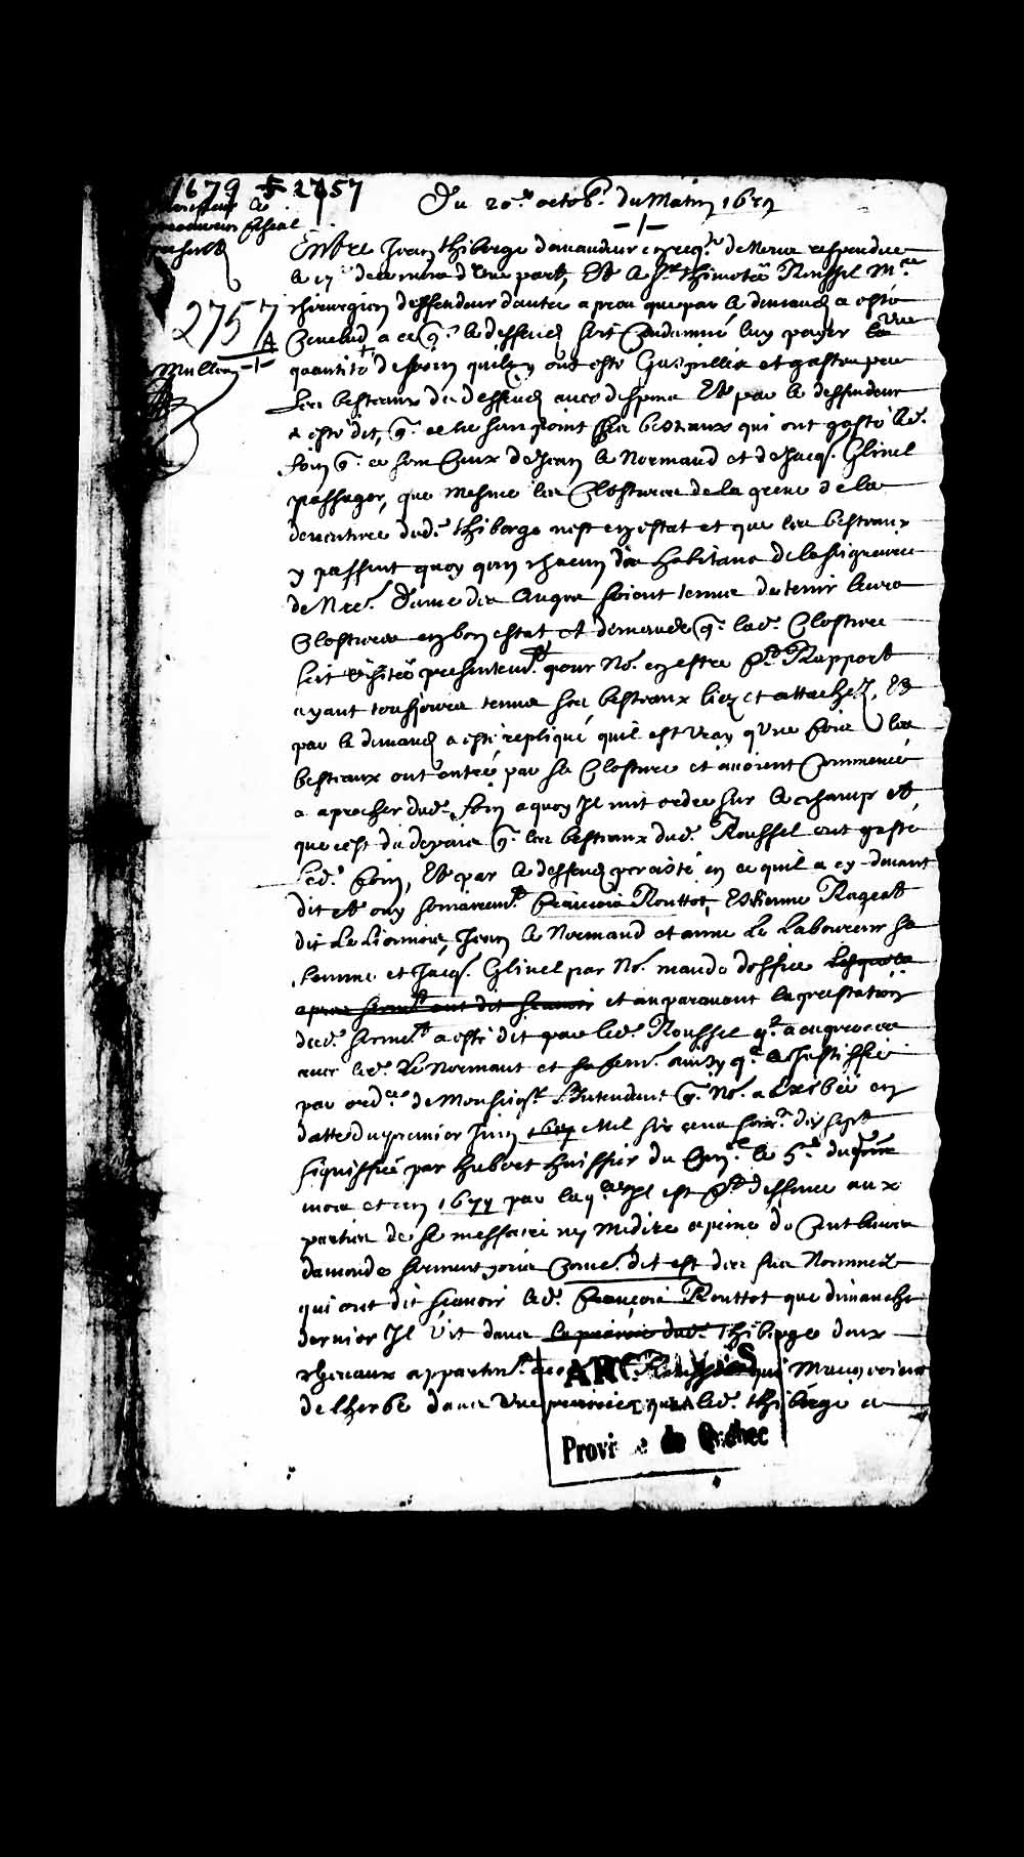 1679 2757
Du 20e octob. du Matin 1679
procureur fiscal
Entre Jean thiberge demandeur en reqte de Nous respondue
le 17 de ce mois d'Une part, Et le Sr thimotée Roussel Me
2757
chirurgien deffendeur d'autre a peau que par le demandr a esté
Conclud a ce q. le deffendr soit Condamné luy payer la
A
quantité de foin quils y ont esté Guaspillez et gastez par
Les bestiaux du deffendr avec despens Et par le deffendeur
a esté dit, q. ce ne sont point ses bestiaux qui ont gasté led.
foin q. ce sont Ceux de Jean le Normand et de Jacq. Glinel
passager, que mesme les Clostures de la
devanture dud. thiberge n'est en estat et que les bestiaux
y passent quoy qu'un chacun des habitans de la seigneurie
de Nre. Dame des Anges soient tenus de tenir leurs
Clostures en bon estat, et demande q. lad. Closture
soit visitée presentemt. pour No. en estre ft. Rapport
ayant tousjours tenus ses bestiaux liez et attachez, Et
par le demandr a esté repliqué quil est Vray qu'une fois les
bestiaux ont entré par sa Closture et avoient Commencé
a aprocher dud. foin a quoy Il mit ordre sur le champ et
que cest du depuis q. les bestiaux dud. Roussel ont gasté
led. foin, Et par le deffendr persisté en ce quil a cy-devant
dit et ouy somairemt. francois Routtot, Estienne Rageot
dit Le Lionnois, Jean le Normand et anne Le Laboureur sa
femme et Jacq. Glinel par No. mandé doffice Lesquels
apres sermt ont dit scavoir et auparavant la prestation
dud. sermt. a esté dit par led. Roussel q.
avec led. Le Normant et sa fem. ainsy q. a Justiffié
par ordce. de Monseigr. L'Intendant q. No. a Exibée en
datte du premier Juin 1677 Mil six cens soixte. dix sept
signiffiée par hubert huissier du le 5e du
mois et an 1677 par laqlle Il est ft. deffence aux
parties de se meffaire ny medire a peine de Cent livres
damende serment pris Come. dit est des sus Nommez
qui ont dit scavoir led. francois Routtot que dimanche
dernier Il Vit dans la prairie dud. Thiberge deux
chevaux appartent. qui Mangeoient
de lherbe dans Une prairie que led. thiberge a
ARCHIVES
Province de Québec